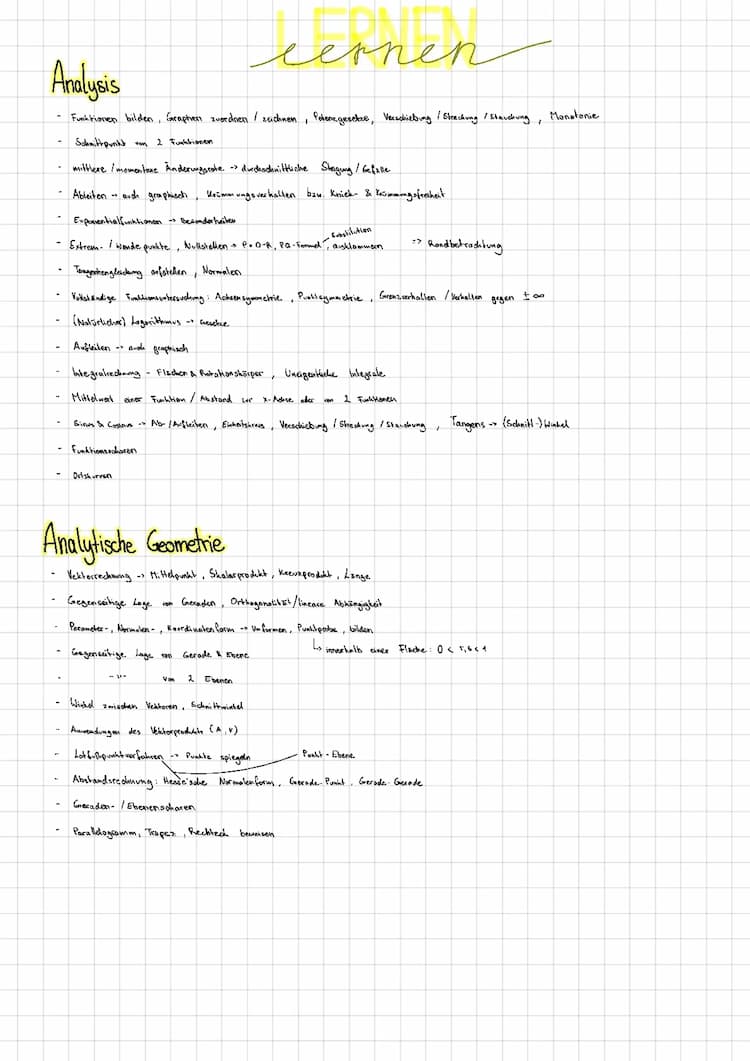 LERNEN
lernen
Analysis
- Funktionen bilden, Graphen zuordnen / zeichnen, Potenzgesetze, Verschiebung / Streckung / Stauchung, Monotonie
- Schnittpunkt von 2 Funktionen
- mittlere / momentane Änderungsrate -> durchschnittliche Steigung / Gefälle
- Ableiten -> auch graphisch, Krümmungsverhalten bzw. Knick- & Krümmungsfreiheit
- Exponentialfunktionen -> Besonderheiten
Substitution
- Extrem- / Wendepunkte, Nullstellen -> PQ-Formel, ausklammern => Randbetrachtung
- Tangentengleichung aufstellen, Normalen
- Vollständige Funktionsuntersuchung: Achsensymmetrie, Punktsymmetrie, Grenzverhalten / Verhalten gegen ± ∞
- (Natürlicher) Logarithmus -> Gesetze
- Aufleiten -> auch graphisch
- Integralrechnung - Flächen & Rotationskörper, Uneigentliche Integrale
- Mittelwert einer Funktion / Abstand zur x-Achse oder von 2 Funktionen
- Sinus & Cosinus -> Ab- / Aufleiten, Einheitskreis, Verschiebung / Streckung / Stauchung, Tangens -> (Schnitt-) Winkel
- Funktionsscharen
- Ortskurven
Analytische Geometrie
- Vektorrechnung -> Mittelpunkt, Skalarprodukt, Kreuzprodukt, Länge
- Gegenseitige Lage von Geraden, Orthogonalität / lineare Abhängigkeit
- Parameter-, Normalen-, Koordinatenform -> Umformen, Punktprobe, bilden
↳ innerhalb einer Fläche: 0 < r,s < 1
- Gegenseitige Lage von Gerade & Ebene
- -"- von 2 Ebenen
- Winkel zwischen Vektoren, Schnittwinkel
- Anwendungen des Vektorprodukts (A, V)
- Lotfußpunktverfahren -> Punkte spiegeln Punkt-Ebene
- Abstandsrechnung: Hesse'sche Normalenform, Gerade-Punkt, Gerade-Gerade
- Geraden- / Ebenenscharen
- Parallelogramm, Trapez, Rechteck beweisen